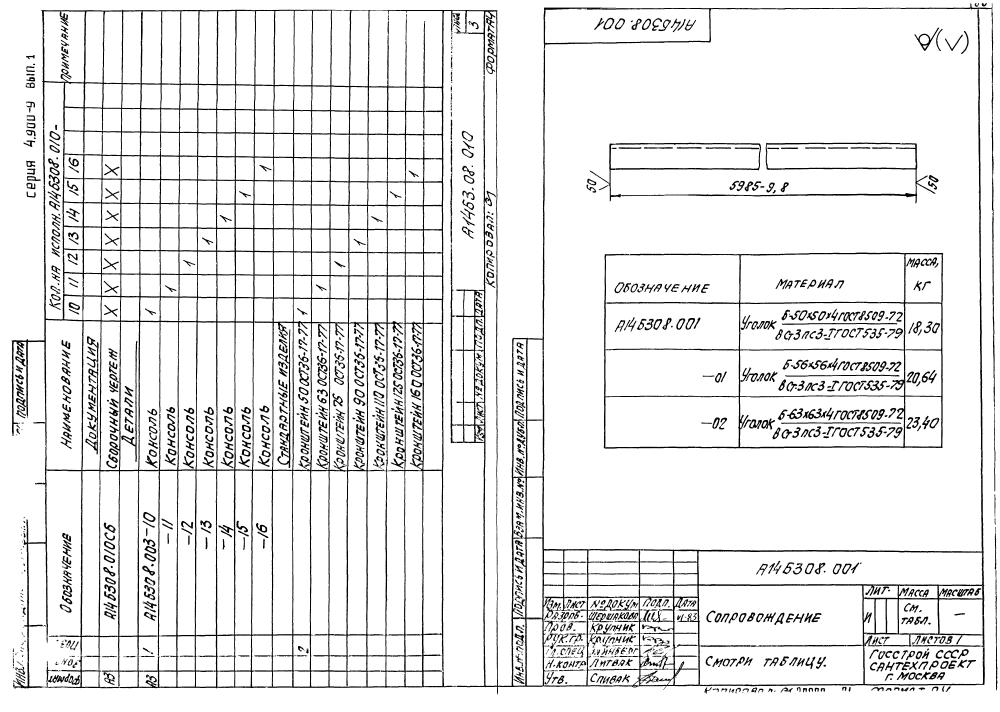 Серия 4.900-9 вып. 1
Формат
Поз.
Обозначение
Наименование
Кол. на исполн. А14Б308.010-
10 11 12 13 14 15 16
Примечание
Документация
А3 А14Б308.010СБ Сборочный чертеж X X X X X X X
Детали
А3 1 А14Б308.003-10 Консоль 1
-11 Консоль 1
-12 Консоль 1
-13 Консоль 1
-14 Консоль 1
-15 Консоль 1
-16 Консоль 1
Стандартные изделия
2 Кронштейн 50 ОСТ36-17-77 1
Кронштейн 63 ОСТ36-17-77 1
Кронштейн 75 ОСТ36-17-77 1
Кронштейн 90 ОСТ36-17-77 1
Кронштейн 110 ОСТ36-17-77 1
Кронштейн 125 ОСТ36-17-77 1
Кронштейн 160 ОСТ36-17-77 1
Подпись и дата
Изм. Лист № докум. Подп. Дата
А14Б3.08.010
Лист
3
Копировал:
Формат А4
А14Б308.001
(√)
50
5985-9,8
50
Обозначение Материал Масса, кг
А14Б308.001 Уголок Б-50х50х4 ГОСТ 8509-72 / ВСт3пс3-I ГОСТ 535-79 18,30
-01 Уголок Б-56х56х4 ГОСТ 8509-72 / ВСт3пс3-I ГОСТ 535-79 20,64
-02 Уголок Б-63х63х4 ГОСТ 8509-72 / ВСт3пс3-I ГОСТ 535-79 23,40
Инв. № подл. Подпись и дата Взам. инв. № Инв. № дубл. Подпись и дата
А14Б308.001
Изм. Лист № докум. Подп. Дата
Разраб. Шершакова VI-83
Пров. Крупник
Рук. гр. Крупник
Гл. спец.
Н. контр Литвак
Утв. Спивак
Сопровождение
Смотри таблицу.
Лит. Масса Масштаб
И См. табл. —
Лист Листов 1
Госстрой СССР
Сантехпроект
г. Москва